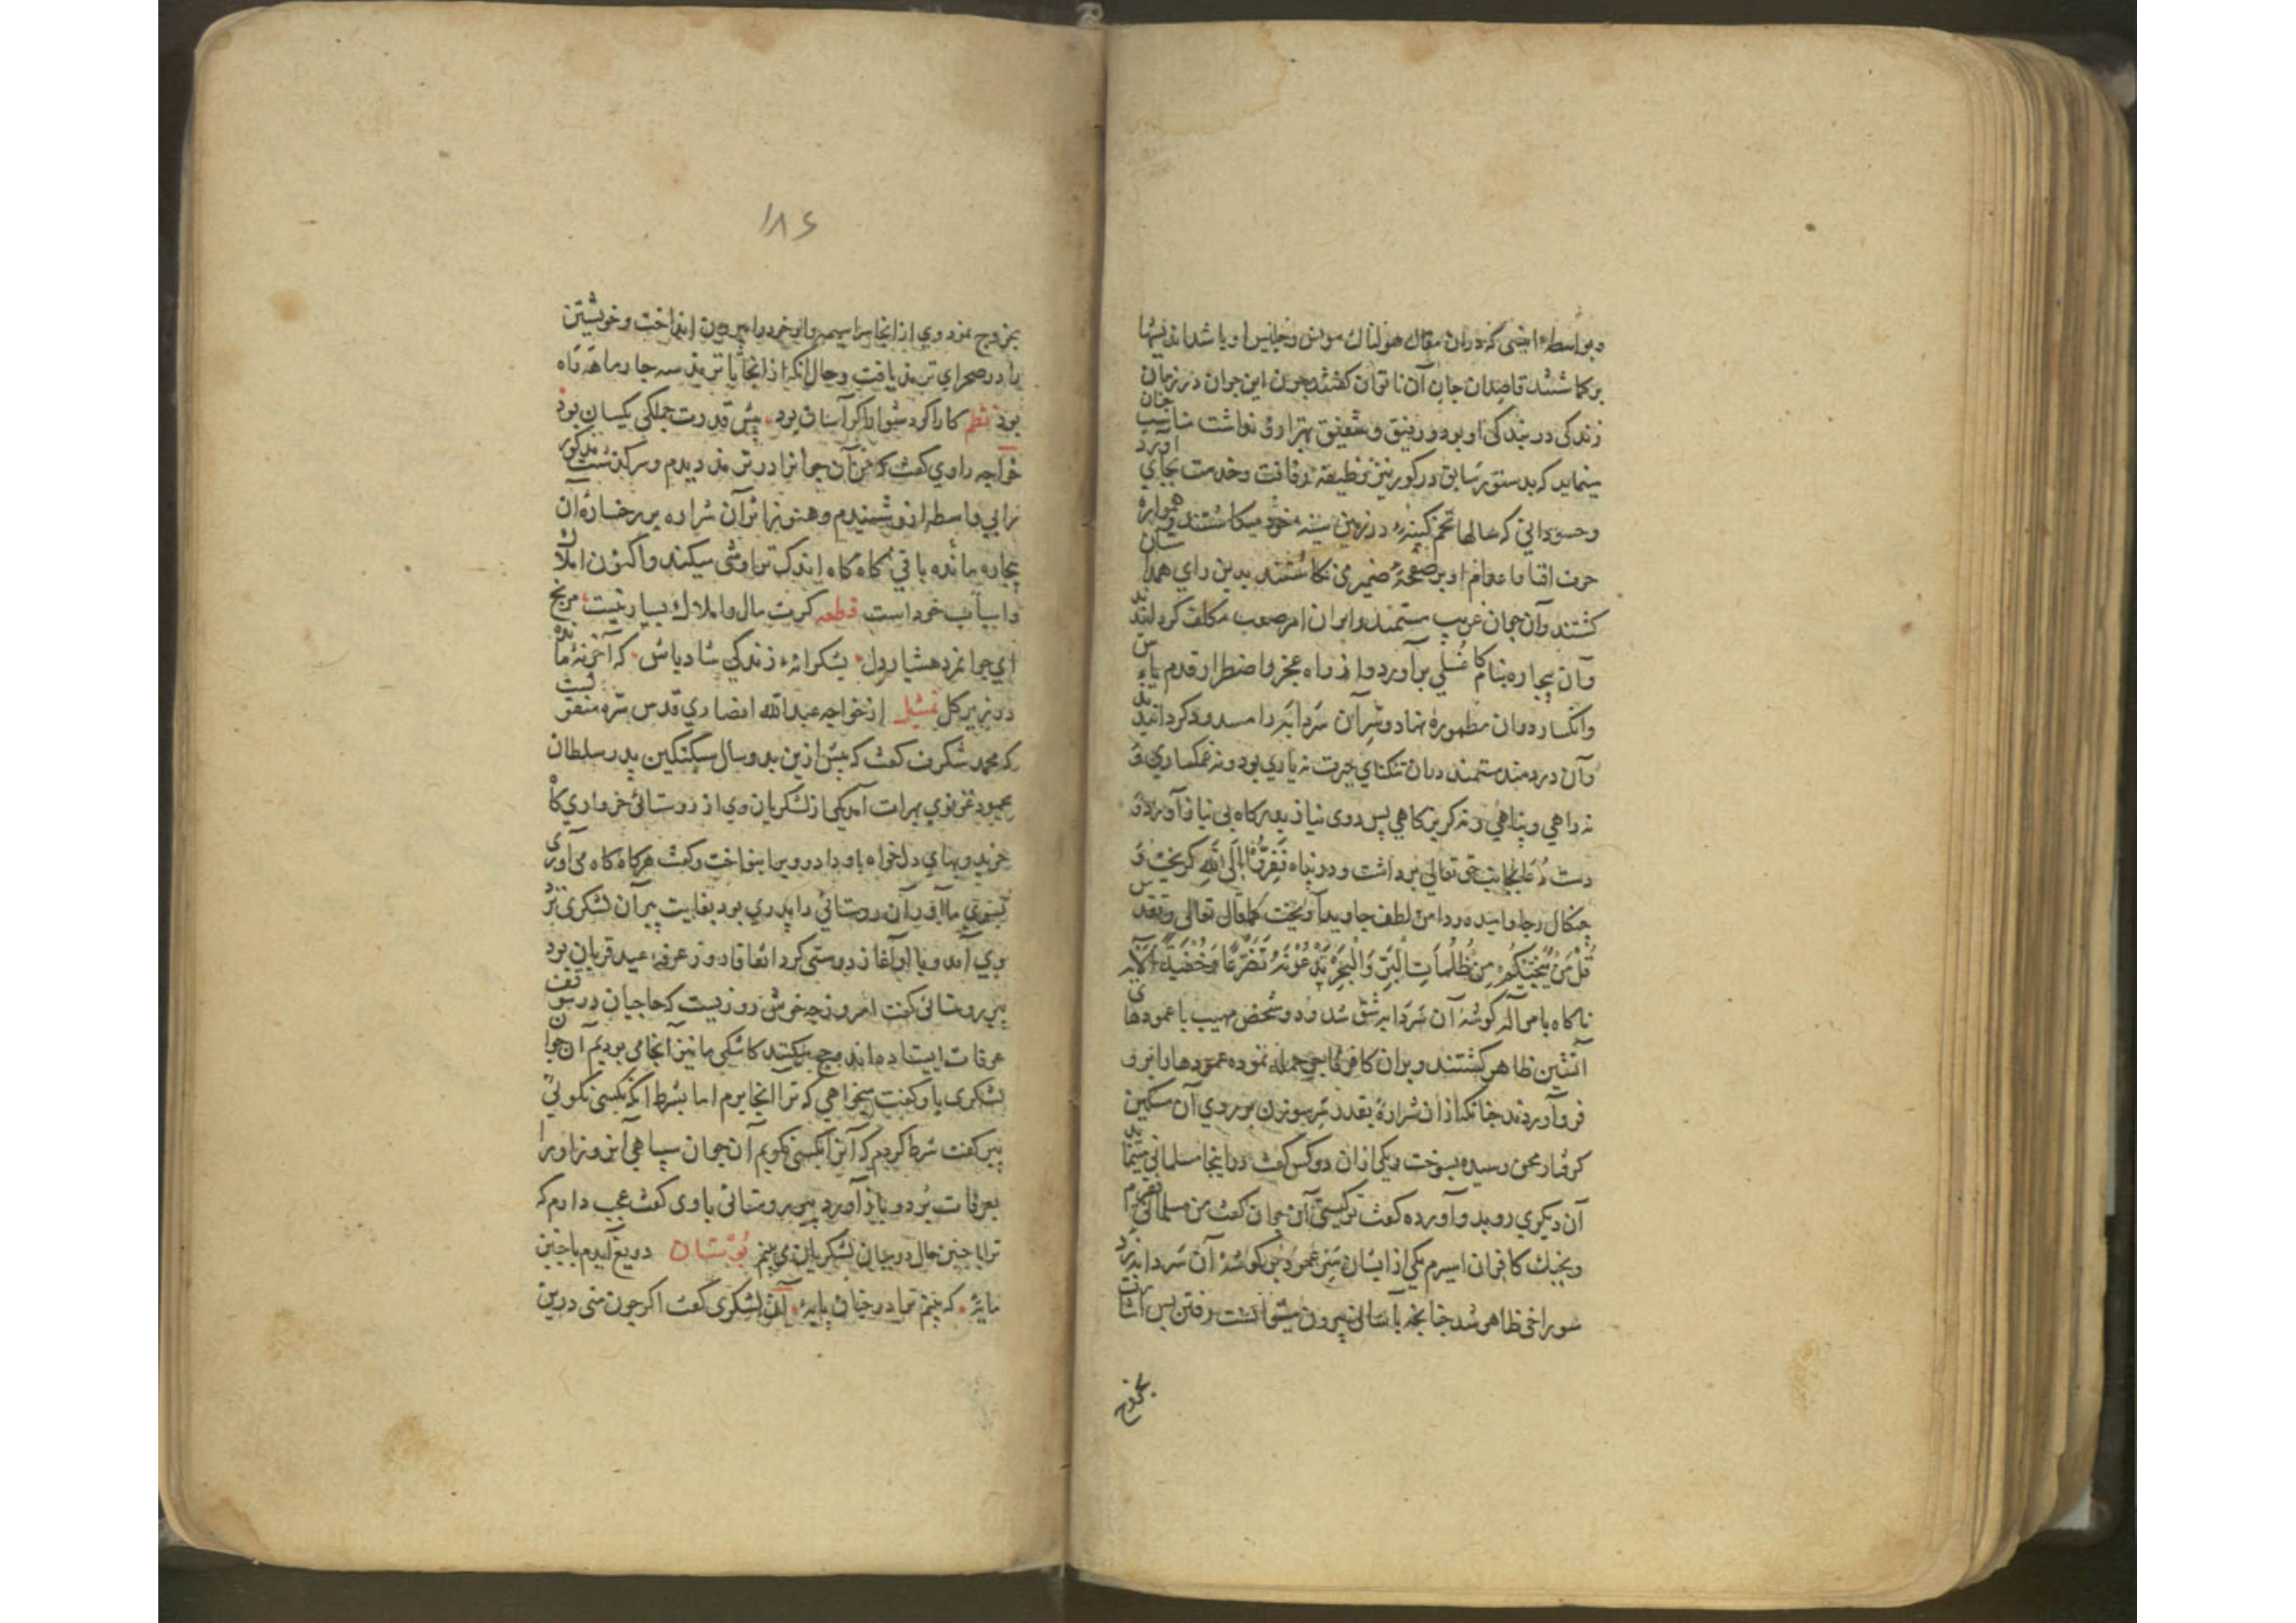 و بواسطهٔ انیسی که در ان مقال هولناک مونس و جانیس او باشد اندیشها
بر کماشتند قاصدان جان آن ناتوان کفتند چون این جوان در زمان
زندکی در بندکی او بود و رفیق و شفیق بهتر از وی نداشت مناسب چنان
مینماید که بدستور سابق در کور نیز وظیفهٔ رفاقت و خدمت بجای آورد
و حسودانی که سالها تخم کینهٔ در زمین سینه خود میکاشتند و همواره
حرف افنا و اعدام او بر صفحهٔ ضمیر می نکاشتند بدین رای همداسان
کشتند و آن جوان غریب مستمند را بران امر صعب مکلف کردانید
و آن بیچاره بناکام غسلی برآورد و از راه عجز و اضطرار قدم یاس
و انکسار دران مطموره نهاد و سر آن سردابه را مسدود کردانیدند
و آن دردمند مستمند دران تنکنای حیرت نه یاری بود و نه غمکساری و
نه راهی و پناهی و نه کریزکاهی پس روی نیاز بدرکاه بی نیاز آورد و
دست دعا بجانب حق تعالی برداشت و در پناه ففروا الی الله کریخت و
چنکال رجا و امید در دامن لطف جاوید آویخت کما قال تعالی و تقدس
قُلْ مَنْ يُنَجِّيكُمْ مِنْ ظُلُمَاتِ الْبَرِّ وَالْبَحْرِ تَدْعُونَهُ تَضَرُّعًا وَخُفْيَةً الآیه
ناکاه بامر آله کوشهٔ آن سردابه شق شد و دو شخص مهیب با عمودهای
آتشین ظاهر کشتند و بران کافر فاجر حمله نموده عمودها را برو
فرو آوردند چنانکه ازان شراره بقدر سر سوزن بر روی آن مسکین
کرفتار محن رسیده بسوخت و یکی ازان دو کس کفت در اینجا مسلمانی مینماید
آن دیکری رو بدو آورده کفت تو کیستی آن جوان کفت من مسلمانی ام
و بچنک کافران اسیرم یکی از ایشان سر عمود بر کوشهٔ آن سردابه زد
سوراخی ظاهر شد چنانچه بآسانی بیرون میتوانست رفتن پس اشارت
بخروج
۱۸۶
بخروج نمود وی از انجا سراسیمه وار خود را بیرون انداخت و خویشتن
را در صحرای ترمذ یافت و حال آنکه از انجا تا ترمذ سه چهار ماهه راه
بود نظم کار اکر دشوار اکر آسان بود پیش قدرت جملکی یکسان بود
خواجه راوی کفت که من آن جوانرا در ترمذ دیدم و سرکذشت مذکور
را بی واسطه ازو شنیدم و هنوز اثر آن شراره بر رخسارهٔ آن
بیچاره مانده باقی کاه کاه اندک تراوشی میکند و اکنون املاک
و اسباب خود است قطعه کرت مال و املاک بسیار نیست مرنج
ای جوانمرد هشیار دل بشکرانهٔ زندکی شاد باش که آخر نهٔ مانده
در زیر کل تمثیل از خواجه عبدالله انصاری قدس سره منقولست
که محمد شکرف کفت که پیش ازین بدو سال سبکتکین پدر سلطان
محمود غزنوی بهرات آمد یکی از لشکریان وی از روستائی خرواری کاه
خرید و بهای دلخواه باو داد و ویرا بنواخت و کفت هرکاه کاه می آوری
بسوی ما آور آن روستائی را پدری بود بغایت پیر آن لشکری نزد
وی آمد و با او آغاز دوستی کرد اتفاقا روز عرفهٔ عید قربان بود
پیر روستائی کفت امروز چه خوش روزیست که حاجیان در موقف
عرفات ایستاده اند و حج میکنند کاشکی ما نیز آنجا می بودیم آن جوان
لشکری با او کفت میخواهی که ترا انجا برم اما بشرط انکه بکسی نکوئی
پیر کفت شرط کردم که آنرا بکسی نکویم آن جوان سپاهی آن روز او را
بعرفات برد و باز آورد پیر روستائی با وی کفت عجب دارم که
ترا با چنین حال در میان لشکریان می بینم بوستان دریغ آیدم با چنین
مایهٔ که بینم ترا در چنان پایهٔ آن لشکری کفت اکر چون منی درین